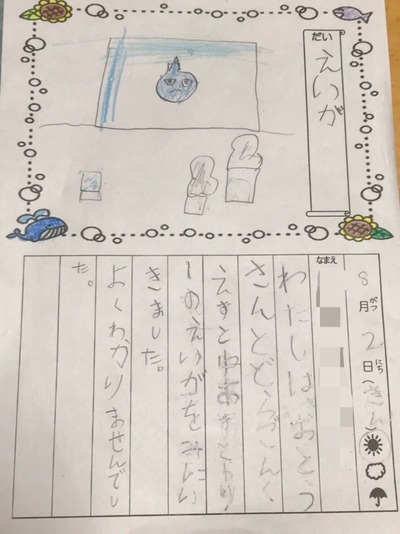 だい
えいが
8月2日(
がつ
にち
なまえ
わたしは、おとう
さんとどらごんく
えすとゆあすとーり
ーのえいがをみにい
きました。
よくわかりませんでし
た。